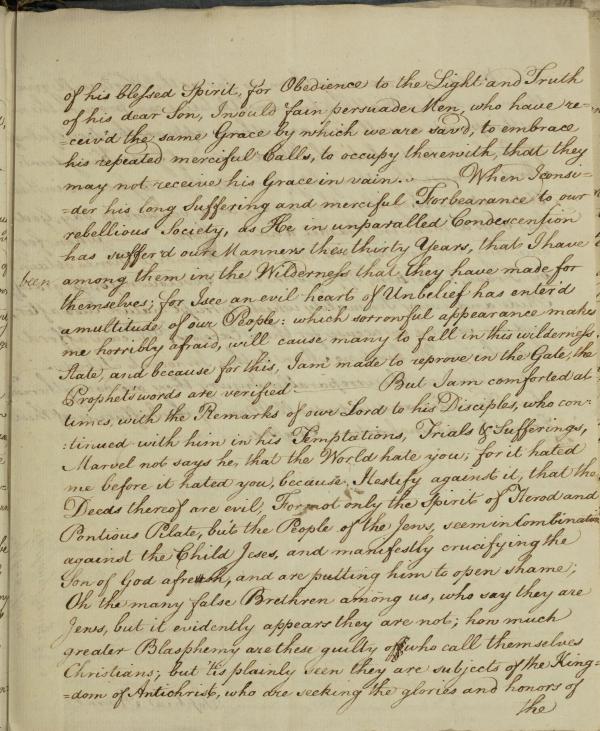 of his blessed Spirit, for Obedience to the Light and Truth
of his dear Son, I would fain persuade Men, who have re-
=ceiv'd the same Grace by which we are sav'd, to embrace
his repeated merciful Calls, to occupy therewith, that they
may not receive his Grace in vain. — When I consi-
=der his long Suffering and merciful Forbearance to our
rebellious Society, as He in unparalled Condescention
has suffer'd our Manners these thirty Years, that I have
been among them in the Wilderness that they have made for
themselves; for I see an evil heart of Unbelief has enter'd
a multitude of our People: which sorrowful appearance makes
me horribly afraid, will cause many to fall in this wilderness
State, and because for this, I am made to reprove in the Gate, the
Prophet's words are verified. But I am comforted at
times, with the Remarks of our Lord to his Disciples, who con-
:tinued with him in his Temptations, Trials & Sufferings,
Marvel not says he, that the World hate you; for it hated
me before it hated you, because I testify against it, that the
Deeds thereof are evil, For not only the Spirit of Herod and
Pontious Pilate, but the People of the Jews, seem in Combination
against the Child Jeses, and manifestly crucifying the
Son of God afresh, and are putting him to open shame;
Oh the many false Brethren among us, who say they are
Jews, but it evidently appears they are not; how much
greater Blasphemy are these guilty of who call themselves
Christians; but 'tis plainly seen they are subjects of the King-
=dom of Antichrist, who are seeking the glories and honors of
the